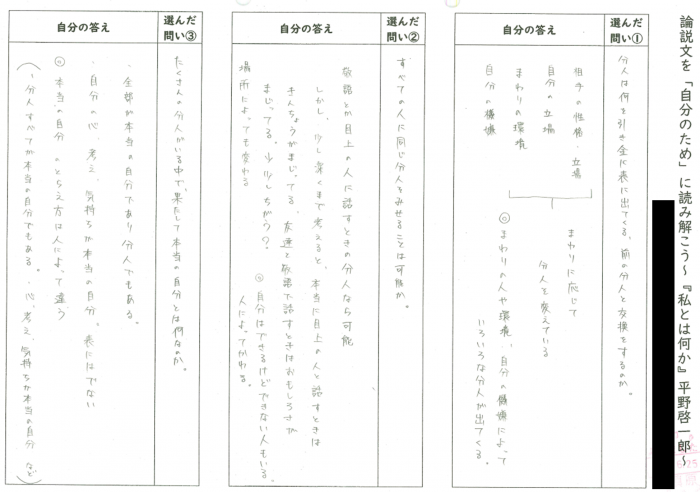 論説文を「自分のため」に読み解こう～『私とは何か』平野啓一郎～
選んだ
問い①
分人は何を引き金に表に出てくる、前の分人と交換をするのか。
自分の答え
相手の性格・立場
自分の立場
まわりの環境
自分の機嫌
まわりに応じて
分人を変えている
◎まわりの人や環境、自分の機嫌によって
いろいろな分人が出てくる。
選んだ
問い②
すべての人に同じ分人をみせることは可能か。
自分の答え
敬語とか目上の人に話すときの分人なら可能
しかし、少し深くまで考えると、本当に目上の人と話すときは
きんちょうがまじってる、友達と敬語で話すときはおもしろさが
まじってる。少しちがう？
場所によっても変わる
◎自分はできるけどできない人もいる。
人によってかわる。
選んだ
問い③
たくさんの分人がいる中で、果たして本当の自分とは何なのか。
自分の答え
・全部が本当の自分であり分人でもある。
・自分の心、考え、気持ちが本当の自分。表にはでない
◎本当の自分のとらえ方は人によって違う
（・分人すべてが本当の自分でもある。・心、考え、気持ちが本当の自分 など）